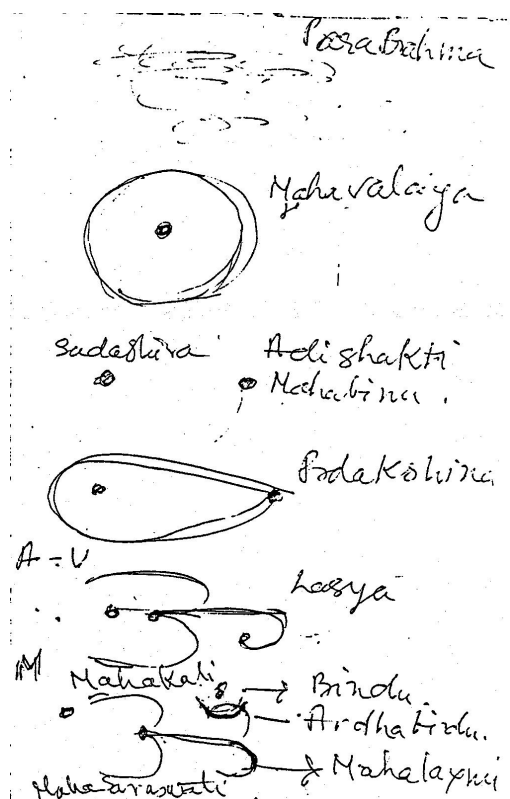 ParaBrahma
Mahavalaiya
Sadashiva Adishakti
Mahabindu.
Pradakshina
A - U
Lasya
M
Mahakali
Bindu.
Ardhabindu.
Mahalaxmi
Mahasaraswati